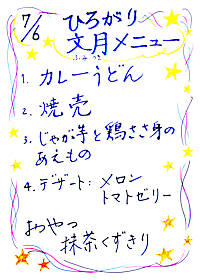 7/6
ひろがり
文月メニュー
ふみつき
1. カレーうどん
2. 焼売
3. じゃが芋と鶏ささ身の
あえもの
4. デザート：メロン
トマトゼリー
おやつ
抹茶くずきり